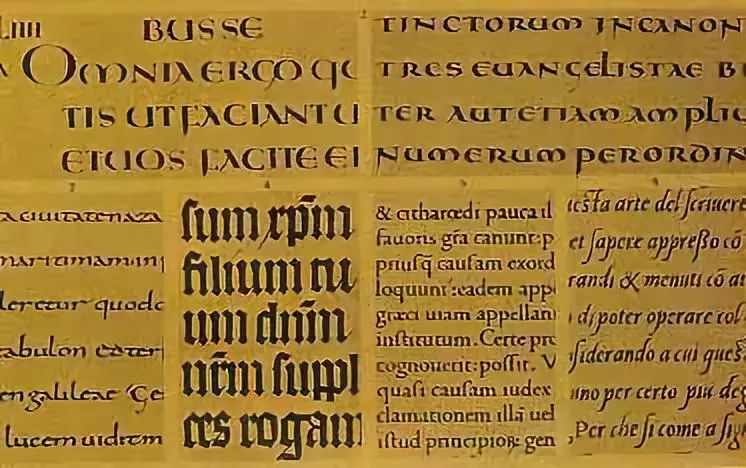 BUSSE
OMNIA ERGO QU
TIS UT FACIANT U
ET UOS FACITE EI
TINCTORUM IN CANON
TRES EUANGELISTAE
TER AUT ETIAM AMPLIU
NUMERUM PER ORDIN
a ciuitate naza
maritimam in
quodc
abulon
en galileae
lucem uidem
sum xp̄m
filium tu
um dn̄m
nr̄m suppl
ces rogam
& citharœdi pauca il
fauoris gr̄a canunt: p
priusq̄ causam exord
loquunt: eadem app
græci uiam appellan
institutum. Certe pro
cognouerit: possit. V
quasi causam iudex
clamationem illā uel
istud principiorꝝ gen
esta arte del scriuere
et sapere appresso cō
randi & menuti cō al
di poter operare col
siderando a cui ques
uno per certo piu deg
Per che si come a sig